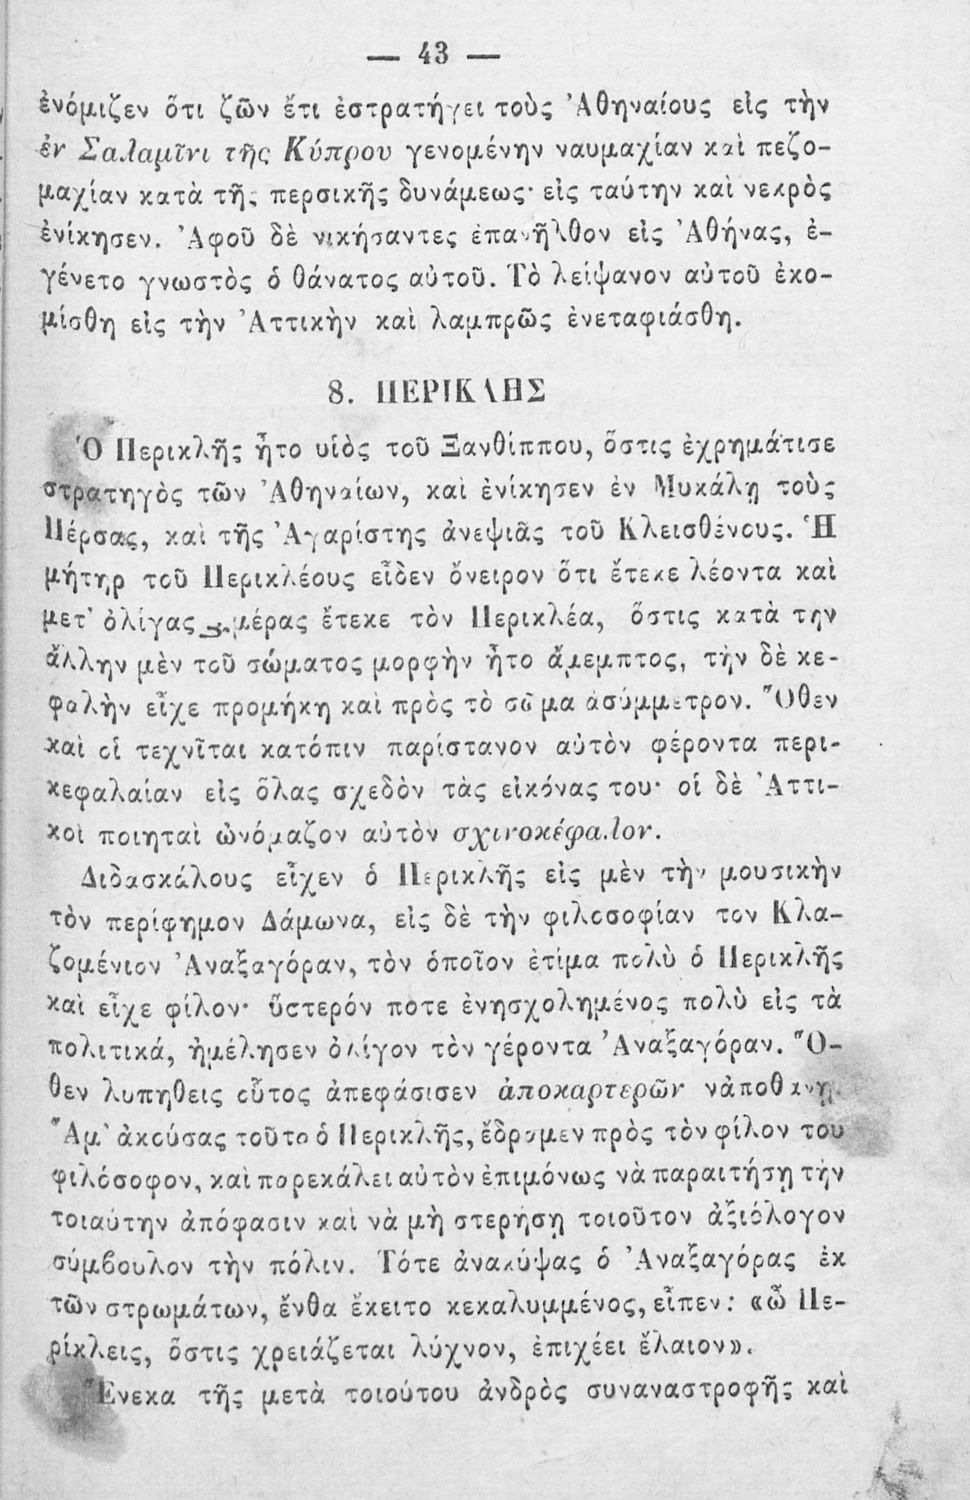 — 43 —
ἐνόμιζεν ὅτι ζῶν ἔτι ἐστρατήγει τοὺς Ἀθηναίους εἰς τὴν
ἐν Σαλαμῖνι τῆς Κύπρου γενομένην ναυμαχίαν καὶ πεζο-
μαχίαν κατὰ τῆς περσικῆς δυνάμεως· εἰς ταύτην καὶ νεκρὸς
ἐνίκησεν. Ἀφοῦ δὲ νικήσαντες ἐπανῆλθον εἰς Ἀθήνας, ἐ-
γένετο γνωστὸς ὁ θάνατος αὐτοῦ. Τὸ λείψανον αὐτοῦ ἐκο-
μίσθη εἰς τὴν Ἀττικὴν καὶ λαμπρῶς ἐνεταφιάσθη.
8. ΠΕΡΙΚΛΗΣ
Ὁ Περικλῆς ἦτο υἱὸς τοῦ Ξανθίππου, ὅστις ἐχρημάτισε
στρατηγὸς τῶν Ἀθηναίων, καὶ ἐνίκησεν ἐν Μυκάλῃ τοὺς
Πέρσας, καὶ τῆς Ἀγαρίστης ἀνεψιᾶς τοῦ Κλεισθένους. Ἡ
μήτηρ τοῦ Περικλέους εἶδεν ὄνειρον ὅτι ἔτεκε λέοντα καὶ
μετ' ὀλίγας ἡμέρας ἔτεκε τὸν Περικλέα, ὅστις κατὰ την
ἄλλην μὲν τοῦ σώματος μορφὴν ἦτο ἄμεμπτος, τὴν δὲ κε-
φαλὴν εἶχε προμήκη καὶ πρὸς τὸ σῶμα ἀσύμμετρον. Ὅθεν
καὶ οἱ τεχνῖται κατόπιν παρίστανον αὐτὸν φέροντα περι-
κεφαλαίαν εἰς ὅλας σχεδὸν τὰς εἰκόνας του· οἱ δὲ Ἀττι-
κοὶ ποιηταὶ ὠνόμαζον αὐτὸν σχινοκέφαλον.
Διδασκάλους εἶχεν ὁ Περικλῆς εἰς μὲν τὴν μουσικὴν
τὸν περίφημον Δάμωνα, εἰς δὲ τὴν φιλοσοφίαν τον Κλα-
ζομένιον Ἀναξαγόραν, τὸν ὁποῖον ἐτίμα πολὺ ὁ Περικλῆς
καὶ εἶχε φίλον· ὕστερόν ποτε ἐνησχολημένος πολὺ εἰς τὰ
πολιτικά, ἠμέλησεν ὀλίγον τὸν γέροντα Ἀναξαγόραν. Ὅ-
θεν λυπηθεις οὗτος ἀπεφάσισεν ἀποκαρτερῶν νἀποθάνῃ.
Ἅμ' ἀκούσας τοῦτο ὁ Περικλῆς, ἔδραμεν πρὸς τὸν φίλον του
φιλόσοφον, καὶ παρεκάλει αὐτὸν ἐπιμόνως νὰ παραιτήσῃ τὴν
τοιαύτην ἀπόφασιν καὶ νὰ μὴ στερήσῃ τοιοῦτον ἀξιόλογον
σύμβουλον τὴν πόλιν. Τότε ἀνακύψας ὁ Ἀναξαγόρας ἐκ
τῶν στρωμάτων, ἔνθα ἔκειτο κεκαλυμμένος, εἶπεν: «ὦ Πε-
ρίκλεις, ὅστις χρειάζεται λύχνον, ἐπιχέει ἔλαιον».
Ἕνεκα τῆς μετὰ τοιούτου ἀνδρὸς συναναστροφῆς καὶ